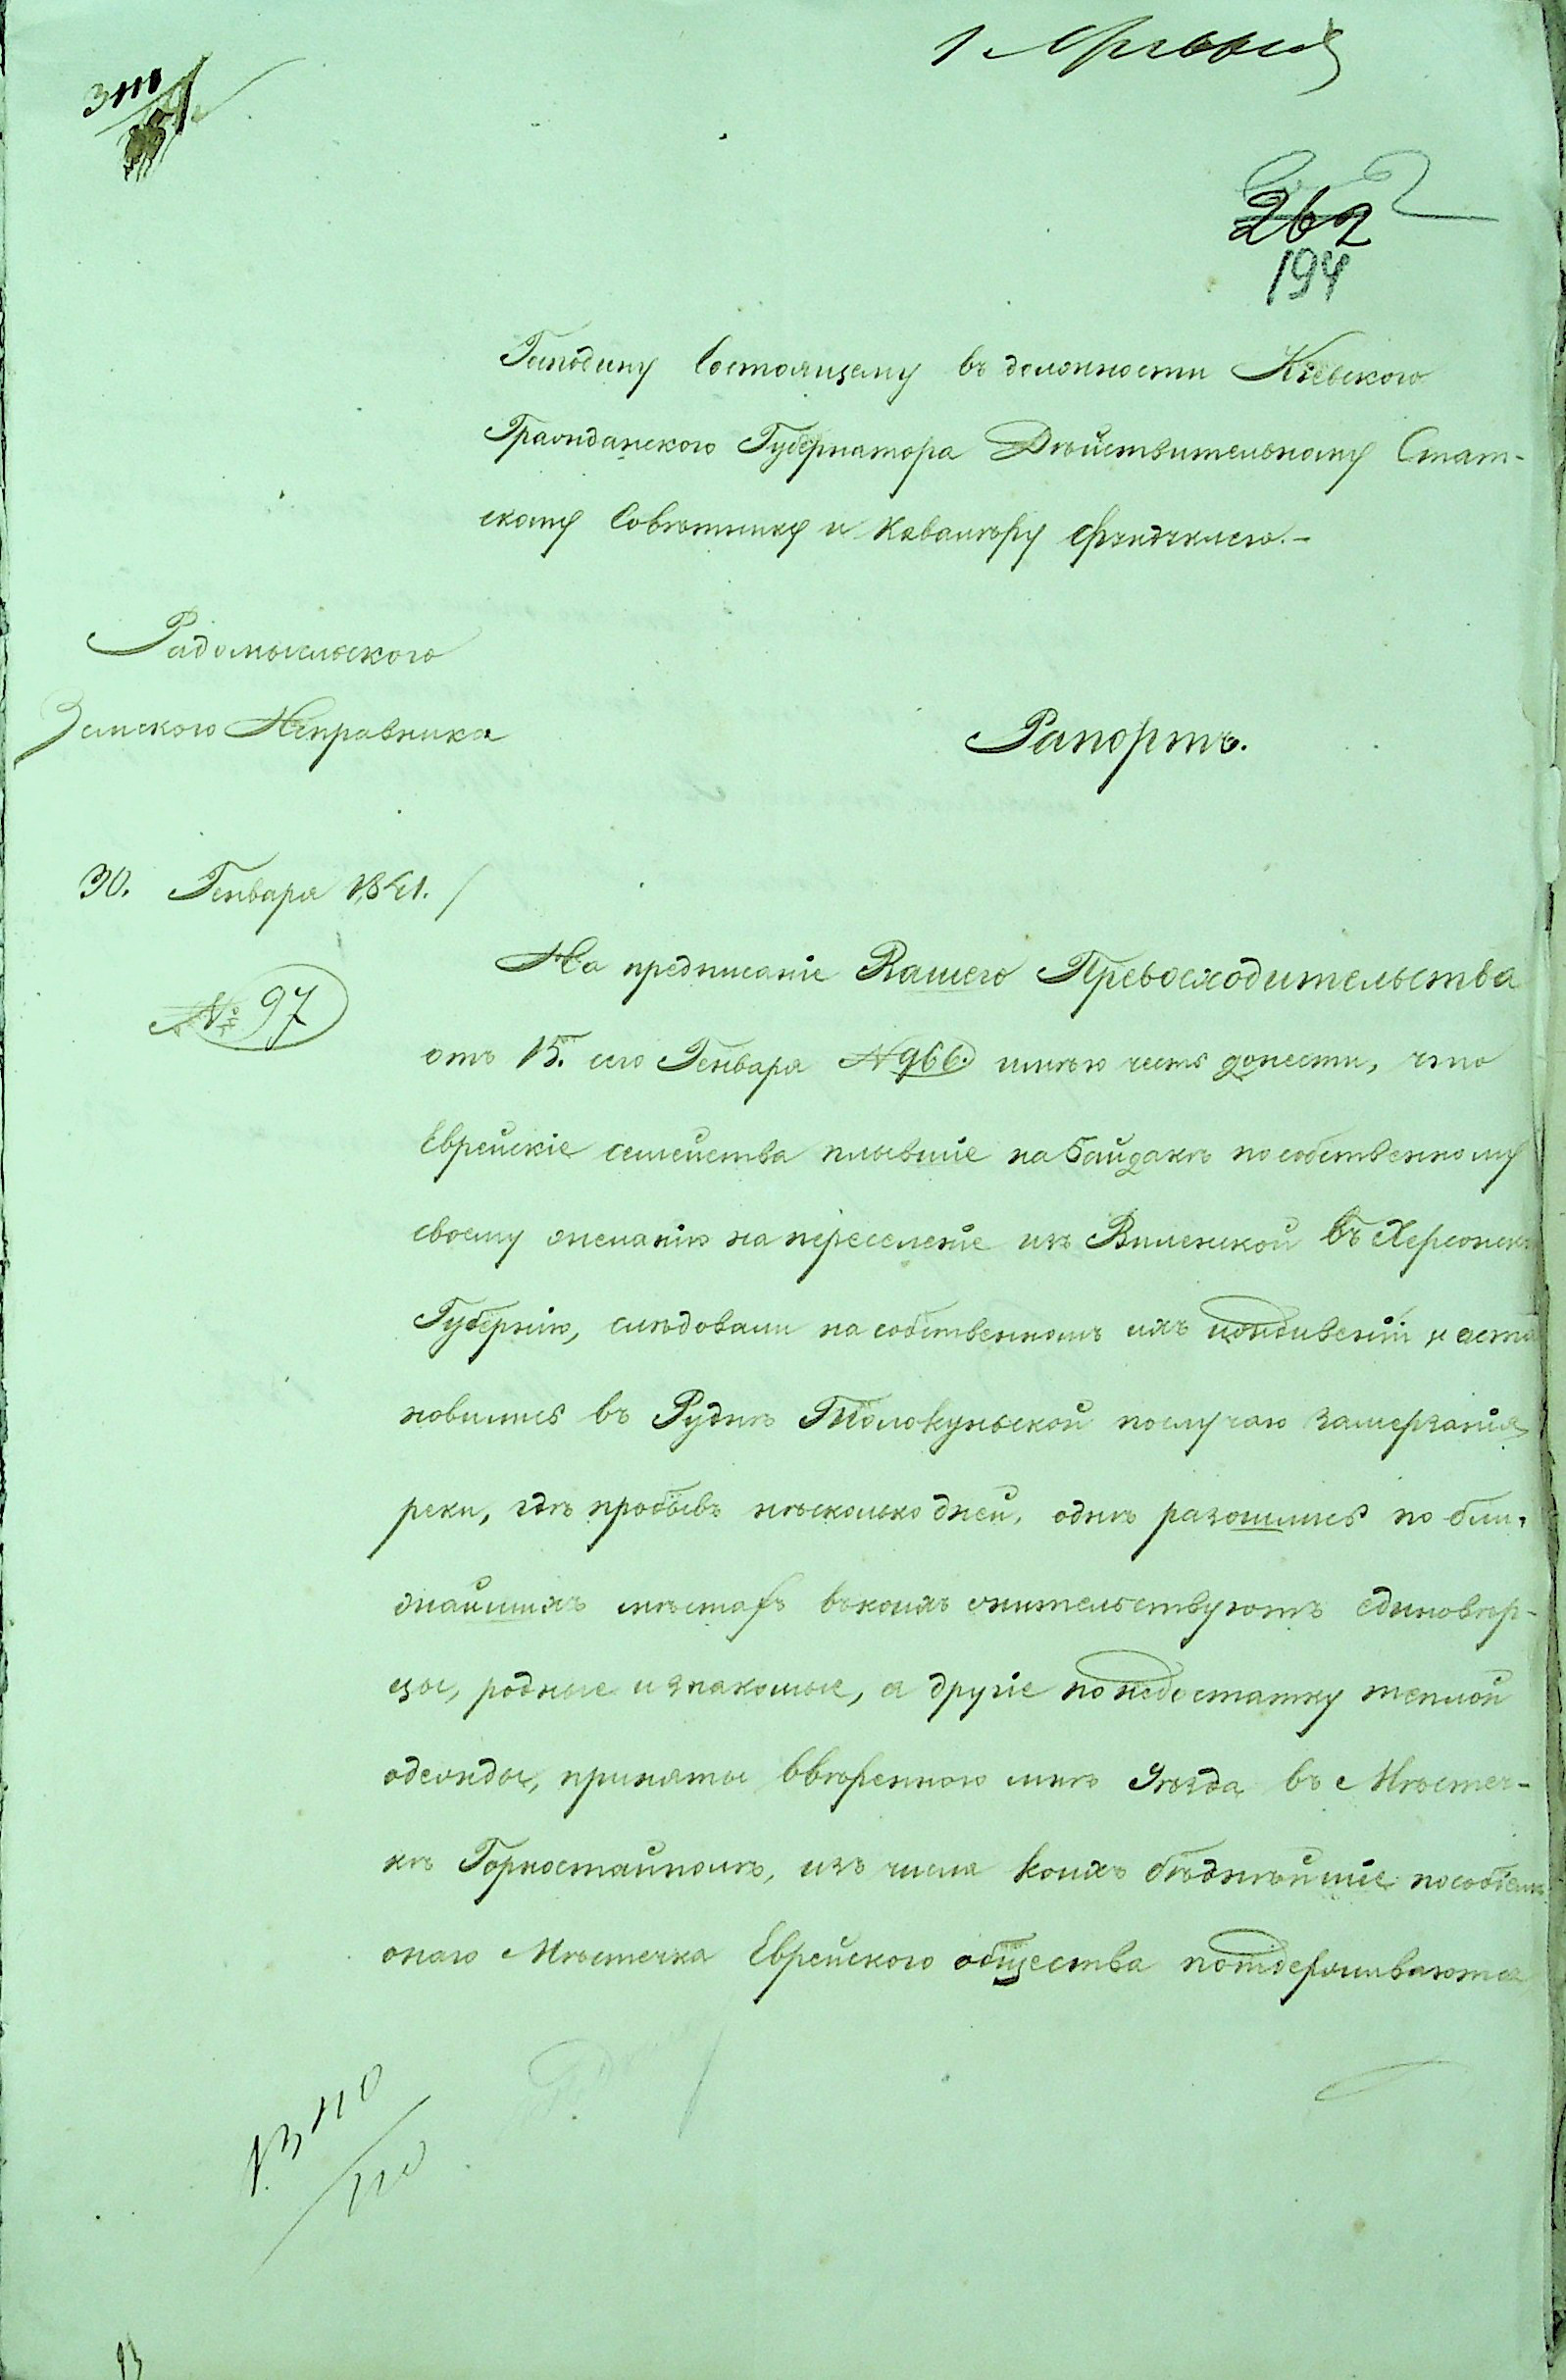 262
194
Господину Состоящему въ должности Кіевского
Гражданского Губернатора Дѣйствительному Стат-
скому Совѣтнику и Кавалѣру Фундуклею.-
Радомысльского
Земского Исправника
Рапортъ.
30. Генваря 1841.
№ 97
На предписаніе Вашего Превосходительства
отъ 15. сего Генваря N 966. имѣю честь донести, что
Еврейскіе семейства плывшіе на байдакѣ по собственному
своему желанію на переселеніе изъ Виленской въ Херсонск
Губернію, слѣдовали на собственномъ ихъ иждивеніи и оста
новились въ Руднѣ Толокунской по случаю замерзанія
реки, гдѣ пробывъ нѣсколько дней, однѣ разошлись по бли-
жайшихъ мѣстахъ въ коихъ жительствуютъ единовѣр-
цы, родные и знакомые, а другіе по недостатку теплой
одежды, приняты ввѣренного мнѣ Уѣзда въ Мѣстеч-
кѣ Горностайполѣ, изъ числа коихъ бѣднѣйшіе пособіем
оного Мѣстечка Еврейского общества потдерживаются